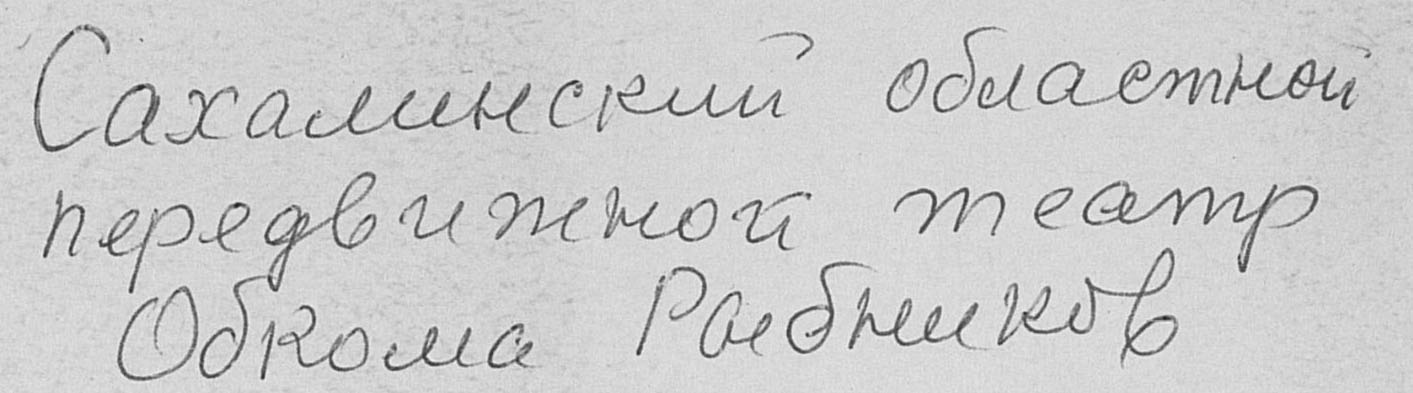 Сахалинский областной
передвижной театр
Обкома Рыбников